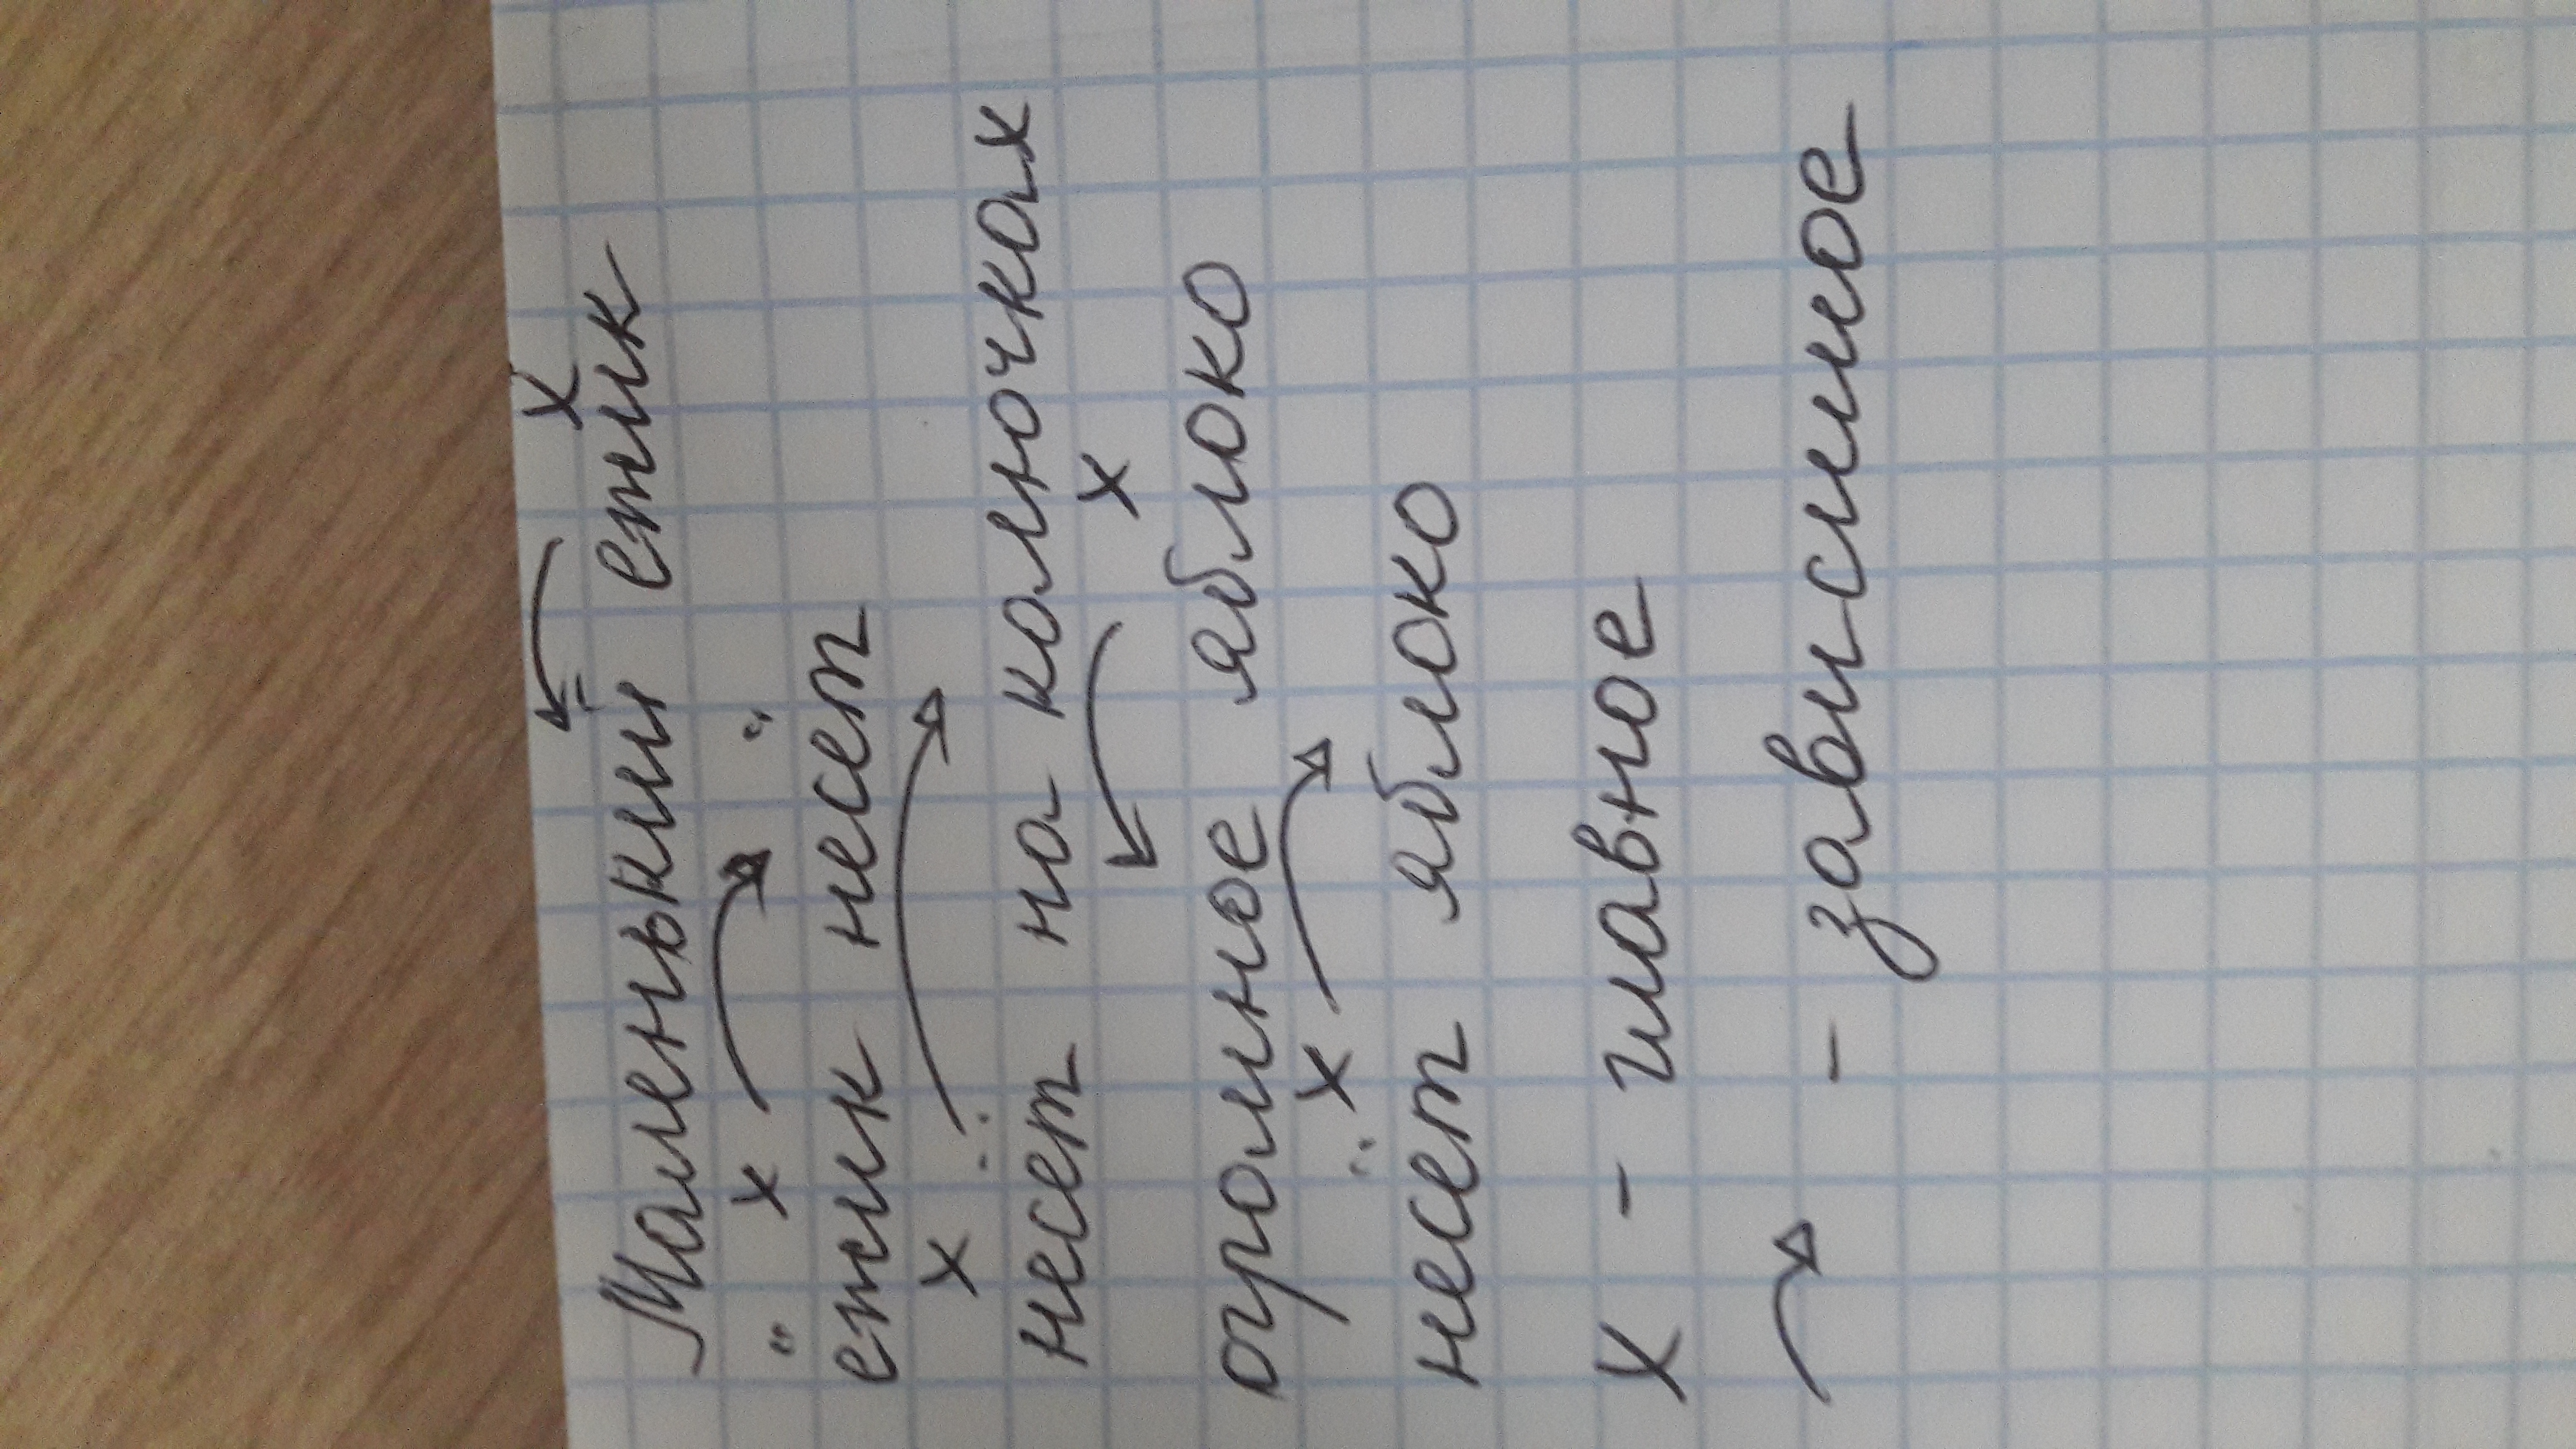 Маленький ежик
ёжик несёт
несёт на колючках
огромное яблоко
несёт яблоко
х - главное
- зависимое